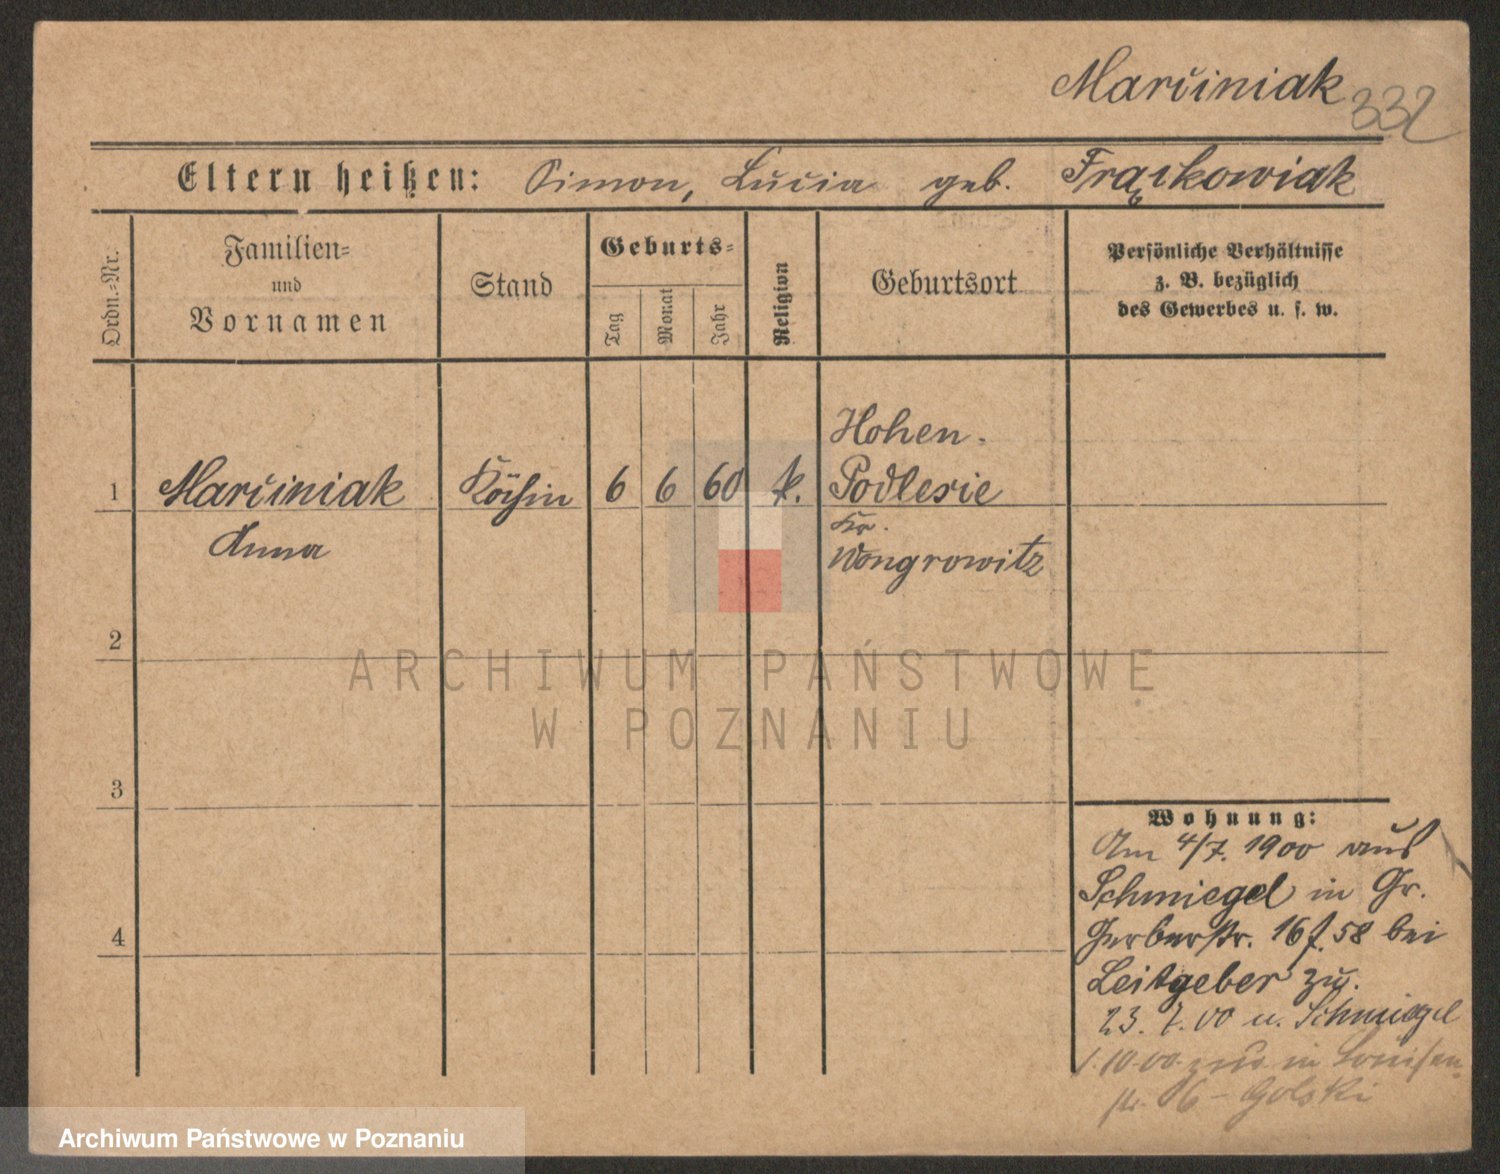 Marciniak
332
Eltern heißen: Simon, Lucia geb. Frąckowiak
Ordn.-Nr.
Familien-
und
Vornamen
Stand
Geburts-
Tag
Monat
Jahr
Religion
Geburtsort
Persönliche Verhältnisse
z. B. bezüglich
des Gewerbes u. s. w.
1
Marciniak
Anna
Köchin
6 6 60 k.
Hohen-
Podlesie
Kr.
Wongrowitz
2
3
4
Wohnung:
Am 4/7. 1900 aus
Schmiegel in Gr.
Gerberstr. 16 f. 58 bei
Leitgeber zu.
23. 7. 00 n. Schmiegel
1. 10. 00 zur. in Louisen-
str. 6 - Golski
ARCHIWUM PAŃSTWOWE
W POZNANIU
Archiwum Państwowe w Poznaniu